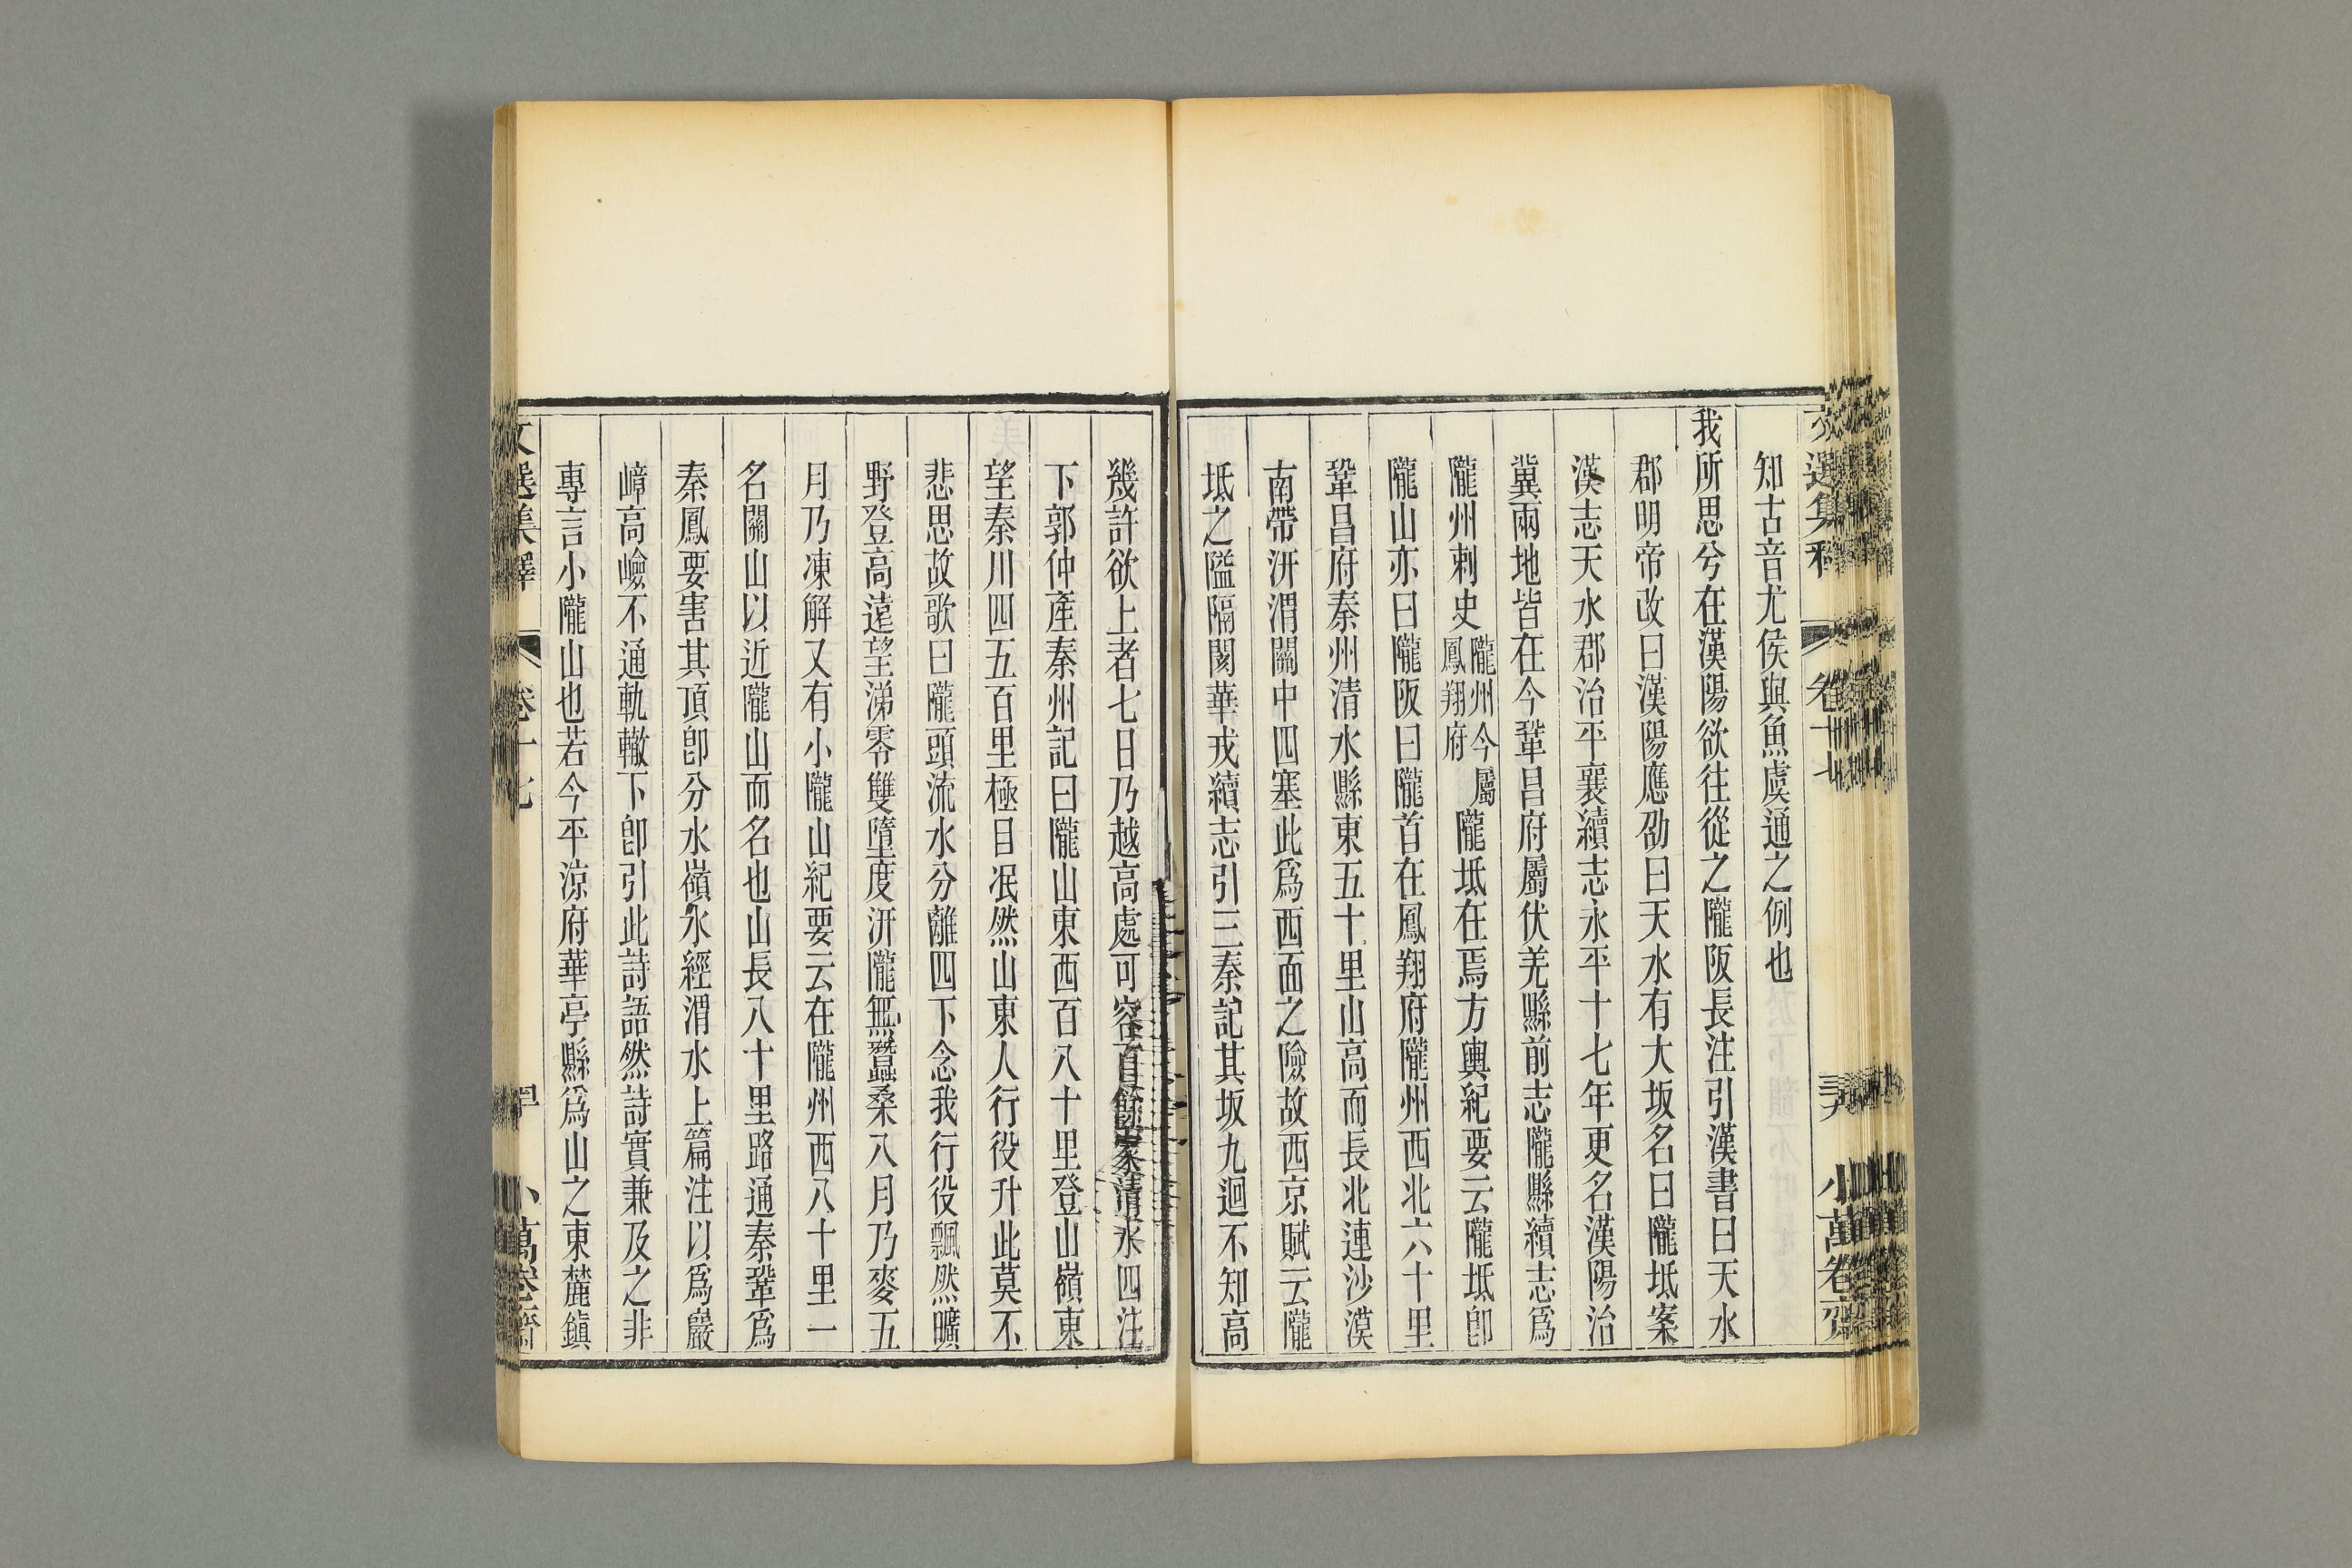 知古音尤侯與魚虞通之例也
我所思兮在漢陽欲往從之隴阪長注引漢書曰天水
郡明帝改曰漢陽應劭曰天水有大坂名曰隴坻案
漢志天水郡治平襄續志永平十七年更名漢陽治
冀兩地皆在今鞏昌府屬伏羌縣前志隴縣續志爲
隴州刺史隴州今屬鳳翔府隴坻在焉方輿紀要云隴坻卽
隴山亦曰隴阪曰隴首在鳳翔府隴州西北六十里
鞏昌府秦州清水縣東五十里山高而長北連沙漠
南帶汧渭關中四塞此爲西面之險故西京賦云隴
坻之隘隔閡華戎續志引三秦記其坂九迴不知高
幾許欲上者七日乃越高處可容百餘家清水四注
下郭仲產秦州記曰隴山東西百八十里登山嶺東
望秦川四五百里極目泯然山東人行役升此莫不
悲思故歌曰隴頭流水分離四下念我行役飄然曠
野登高遠望涕零雙墮度汧隴無蠶桑八月乃麥五
月乃凍解又有小隴山紀要云在隴州西八十里一
名關山以近隴山而名也山長八十里路通秦鞏爲
秦鳳要害其頂卽分水嶺水經渭水上篇注以爲巖
嶂高嶮不通軌轍下卽引此詩語然詩實兼及之非
專言小隴山也若今平涼府華亭縣爲山之東麓鎭
文選集釋
卷十七
小萬卷齋